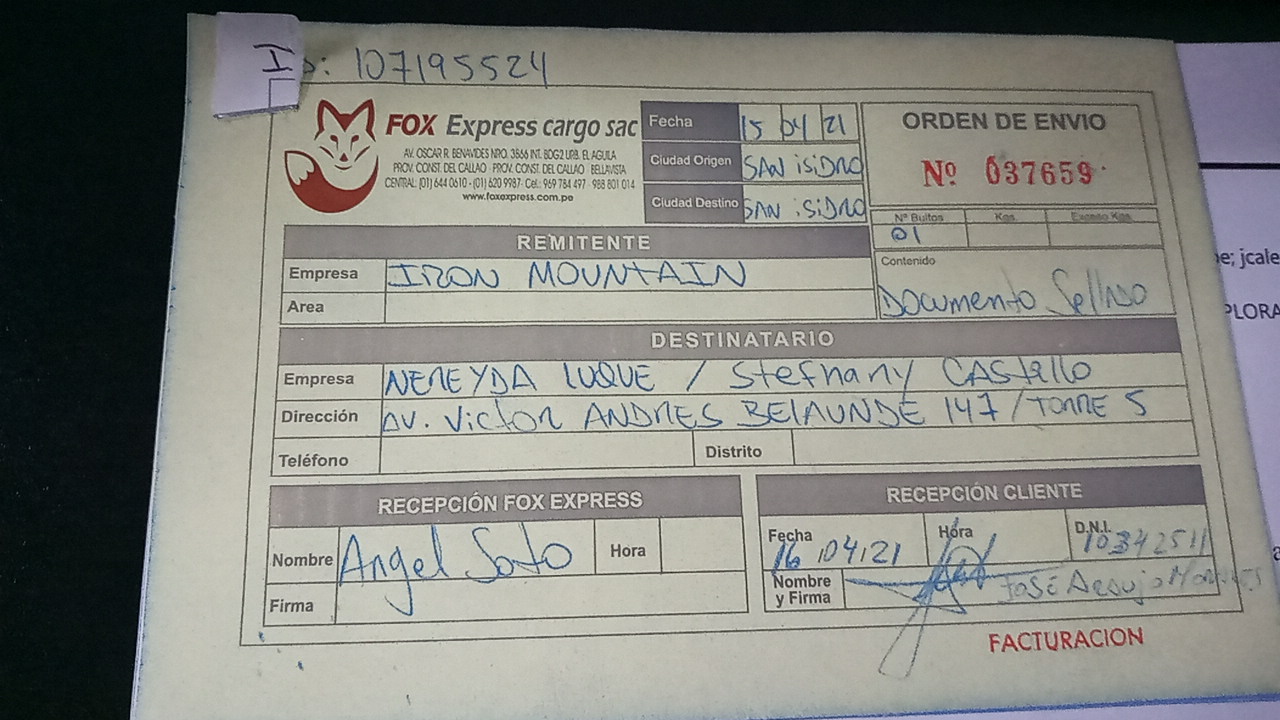 ID: 107195524
FOX Express cargo sac
AV. OSCAR R. BENAVIDES NRO. 3866 INT. BDG2 URB. EL AGUILA
PROV. CONST. DEL CALLAO - PROV. CONST. DEL CALLAO - BELLAVISTA
CENTRAL: (01) 644 0610 - (01) 620 9987- Cel.: 969 784 497 - 988 801 014
www.foxexpress.com.pe
Fecha 15 04 21
Ciudad Origen SAN ISIDRO
Ciudad Destino SAN ISIDRO
ORDEN DE ENVIO
Nº 037659
Nº Bultos Kgs. Exceso Kgs.
01
Contenido
Documento Sellado
REMITENTE
Empresa IRON MOUNTAIN
Area
DESTINATARIO
Empresa NEREYDA LUQUE / Stefhany CAStello
Dirección AV. Victor ANDRES BELAUNDE 147 / TORRE 5
Teléfono Distrito
RECEPCIÓN FOX EXPRESS
Nombre Angel Soto Hora
Firma
RECEPCIÓN CLIENTE
Fecha Hora D.N.I.
16 04 21 10342511
Nombre y Firma JOSE Araujo
FACTURACION
e; jcale
PLORA